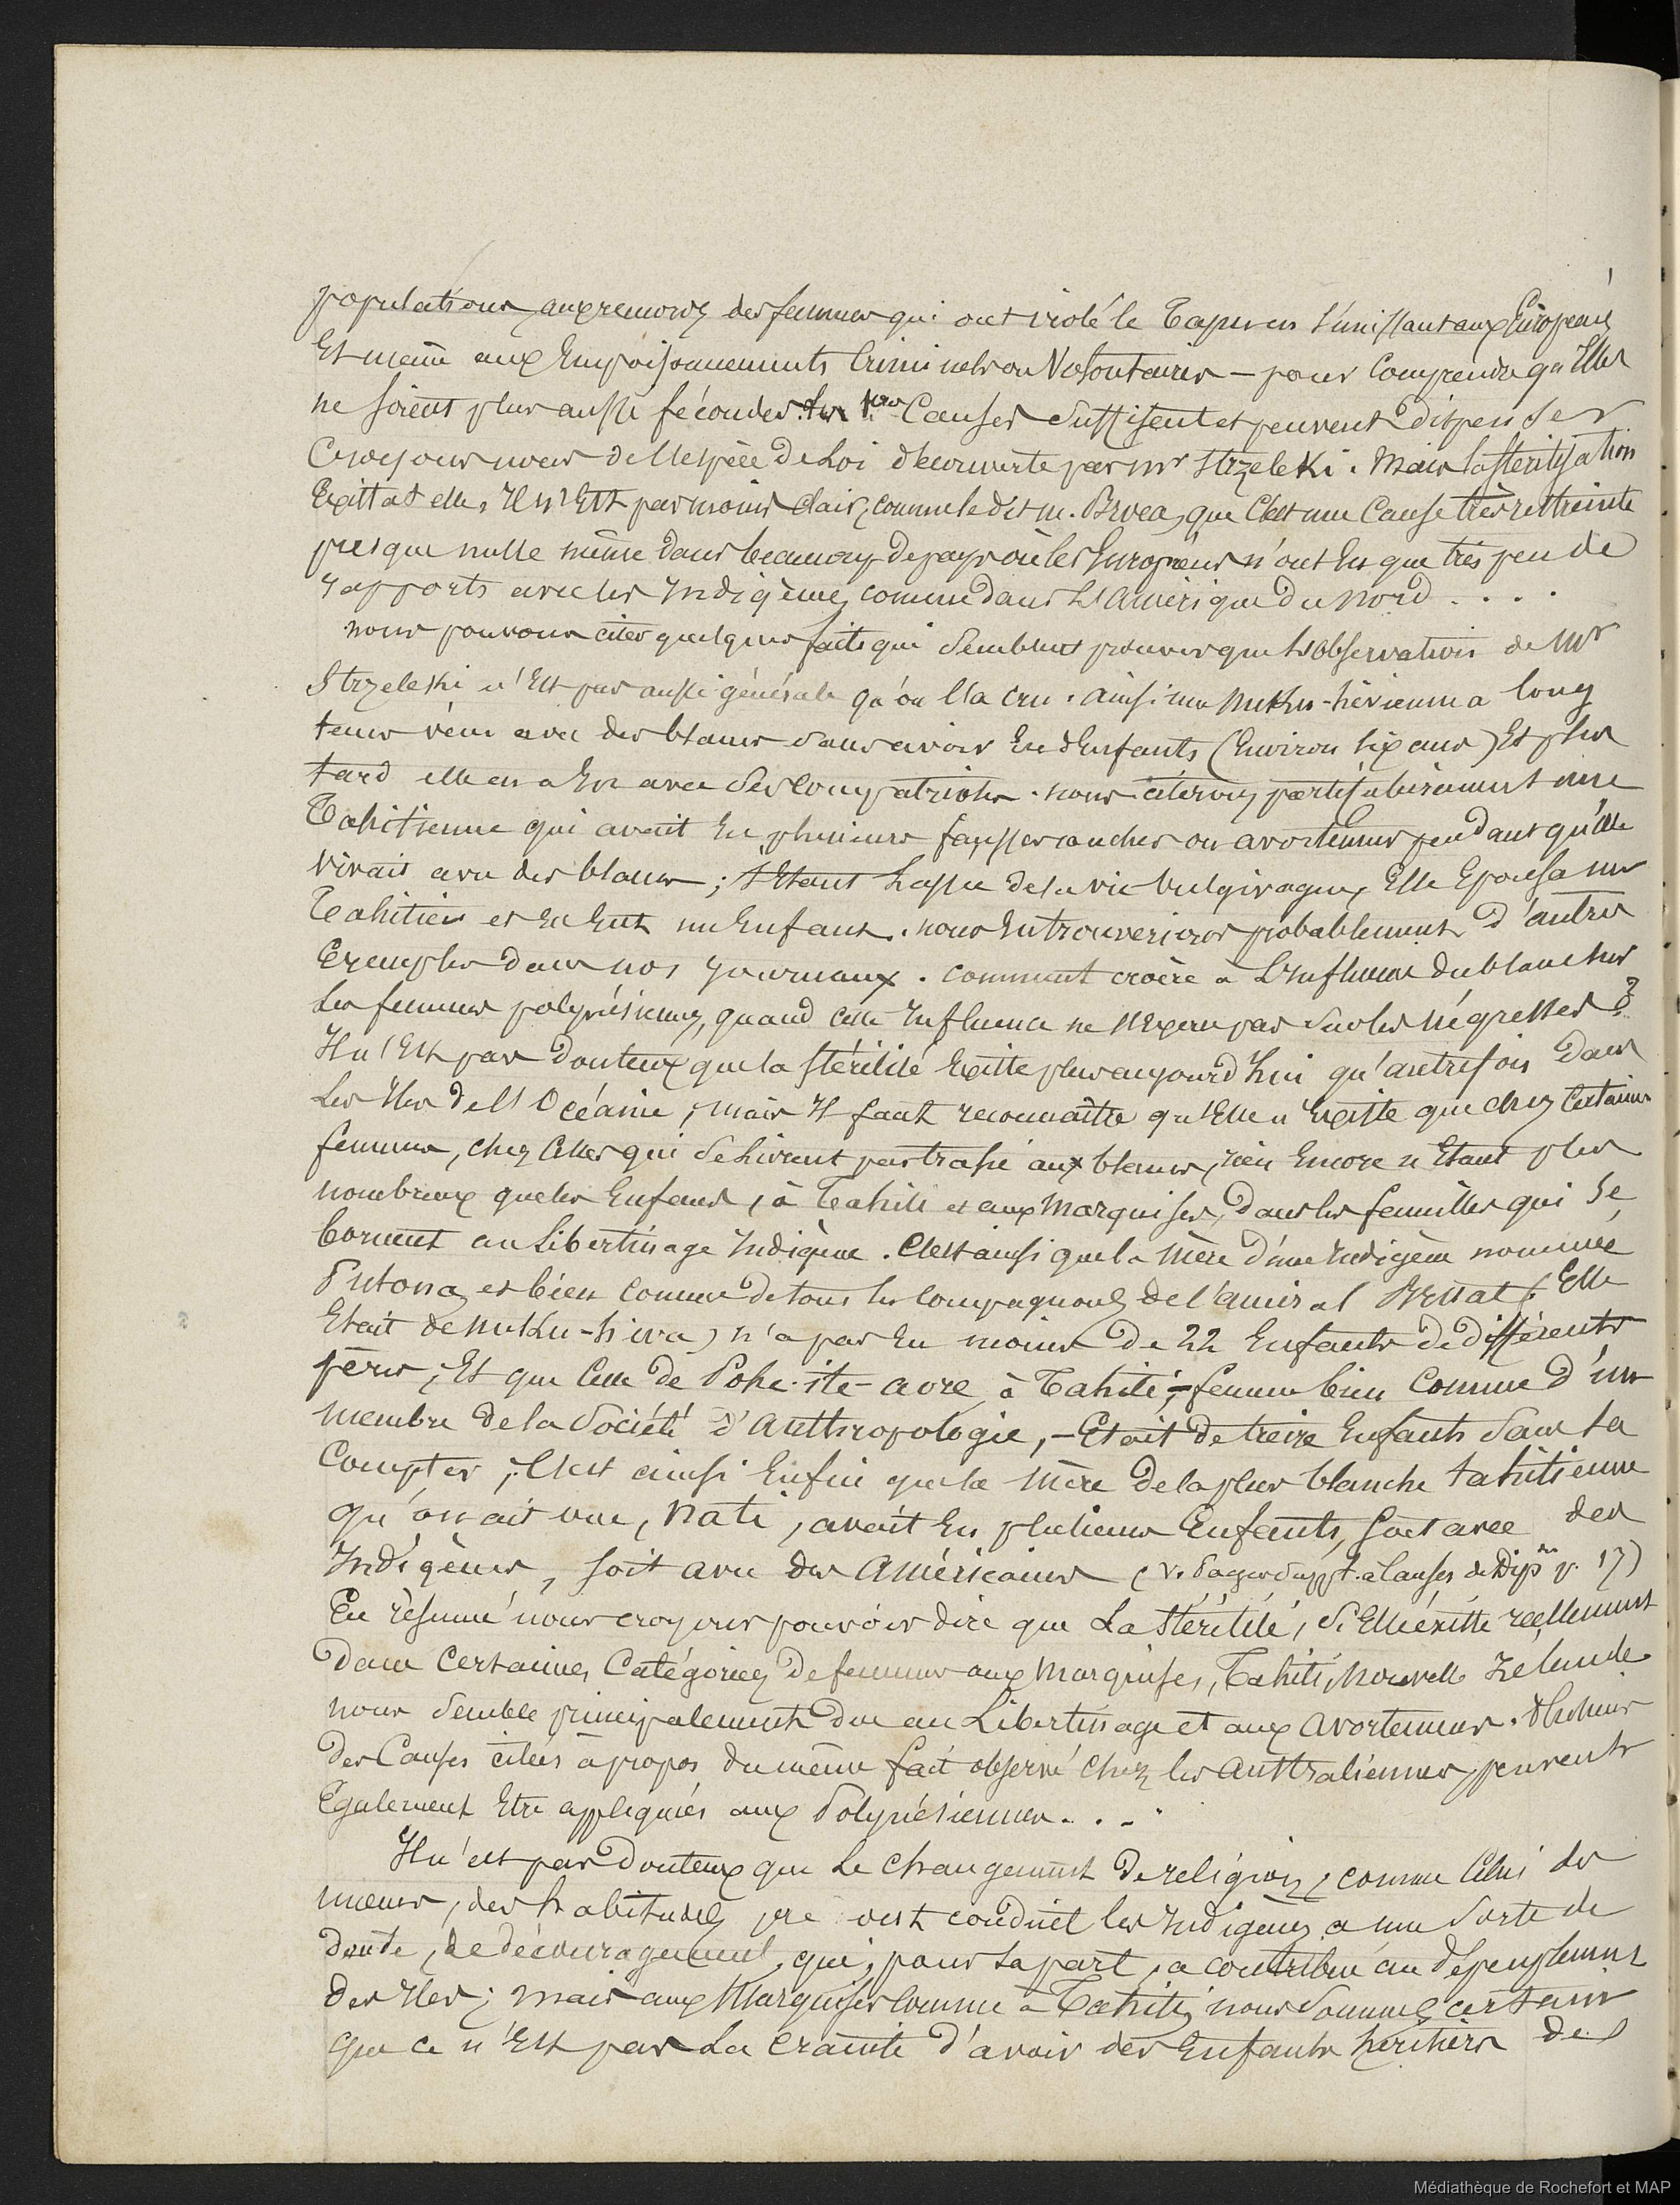 populations, aux remords des femmes qui ont violé le Tapu en s'unissant aux Européens
Et même aux Empoisonnements Criminels ou Volontaires – pour Comprendre qu'Elles
ne soient plus aussi fécondes. Ces Causes Suffisent et peuvent Dispenser
Croyons nous de l'espèce De Loi découverte par mr Strzeleki. Mais la stérilisation
Existat elle, Il n'Est pas moins clair, comme le dit m. Broca, que C'est une Cause très restreinte
presque nulle même dans beaucoup de pays où les Européens n'ont Eu que très peu de
rapports avec les Indigènes, comme dans L'amérique du nord . . . .
nous pouvons citer quelques faits qui Semblent prouver que L'observation de Mr
Strzeleski n'Est pas aussi générale qu'on l'a cru. ainsi une nuku-hivienne a long
tems vécu avec des blancs sans avoir Eu d'Enfants (Environ six ans) Et plus
tard elle en a Eu avec des compatriotes. nous citerons particulièrement une
Tahitienne qui avait Eu plusieurs fausses couches ou avortemens pendant qu'elle
vivait avec des blancs; S'Etant Lassée de la vie vulgivague, Elle Epousa un
Tahitien et En Eut un Enfant. nous En trouverions probablement d'autres
Exemples dans nos journaux. comment croire à L'influence du blanc sur
Les femmes polynésiennes, quand cette Influence ne s'Exerce pas sur les négresses?
Il n'Est pas Douteux que la Stérilité Existe plus aujourd'hui qu'autrefois Dans
Les Iles de l'Océanie, mais Il faut reconnaître qu'Elle n'Existe que chez Certaines
femmes, chez Celles qui se Livrent par trafic aux blancs, rien Encore n'Etant plus
nombreux que les Enfans, à Tahiti et aux Marquises, Dans les familles qui Se
bornent au Libertinage Indigène. C'est ainsi que la Mère d'une Indigène nommée
Putona, et bien connue de tous les Compagnons de l'amiral Bruat (Elle
Etait de nuku-hiva) n'a pas Eu moins De 22 Enfants de différents
pères; Et que Celle de Pohe-ite-aore, à Tahiti, – femme bien Connue d'un
Membre de la Société d'Anthropologie, – Etait de treize Enfants Sans la
Compter; C'est ainsi Enfin que la Mère de la plus blanche tahitienne
qu'on ait vue, Nati, avait Eu plusieurs Enfants, soit avec des
Indigènes, soit avec des Américains (V. Pages suppt. à Causes de Dispon p. 17)
En résumé nous croyons pouvoir dire que La Stérilité, si Elle existe réellement
Dans Certaines Catégories de femmes aux Marquises, Tahiti, Nouvelle Zelande
nous Semble principalement Due au Libertinage et aux Avortemens. Plusieurs
Des Causes citées à propos du même fait observé Chez les Australiennes, peuvent
Egalement Etre appliquées aux Polynésiennes. . .
Il n'est pas Douteux que Le changement De religion, comme Celui des
mœurs, des habitudes, ont conduit les Indigènes à une Sorte de
Doute, de découragement, qui, pour Sa part, a contribué au dépeuplement
Des Iles; Mais aux Marquises comme à Tahiti, nous Sommes certains
que ce n'Est pas La crainte d'avoir des Enfants héritiers des